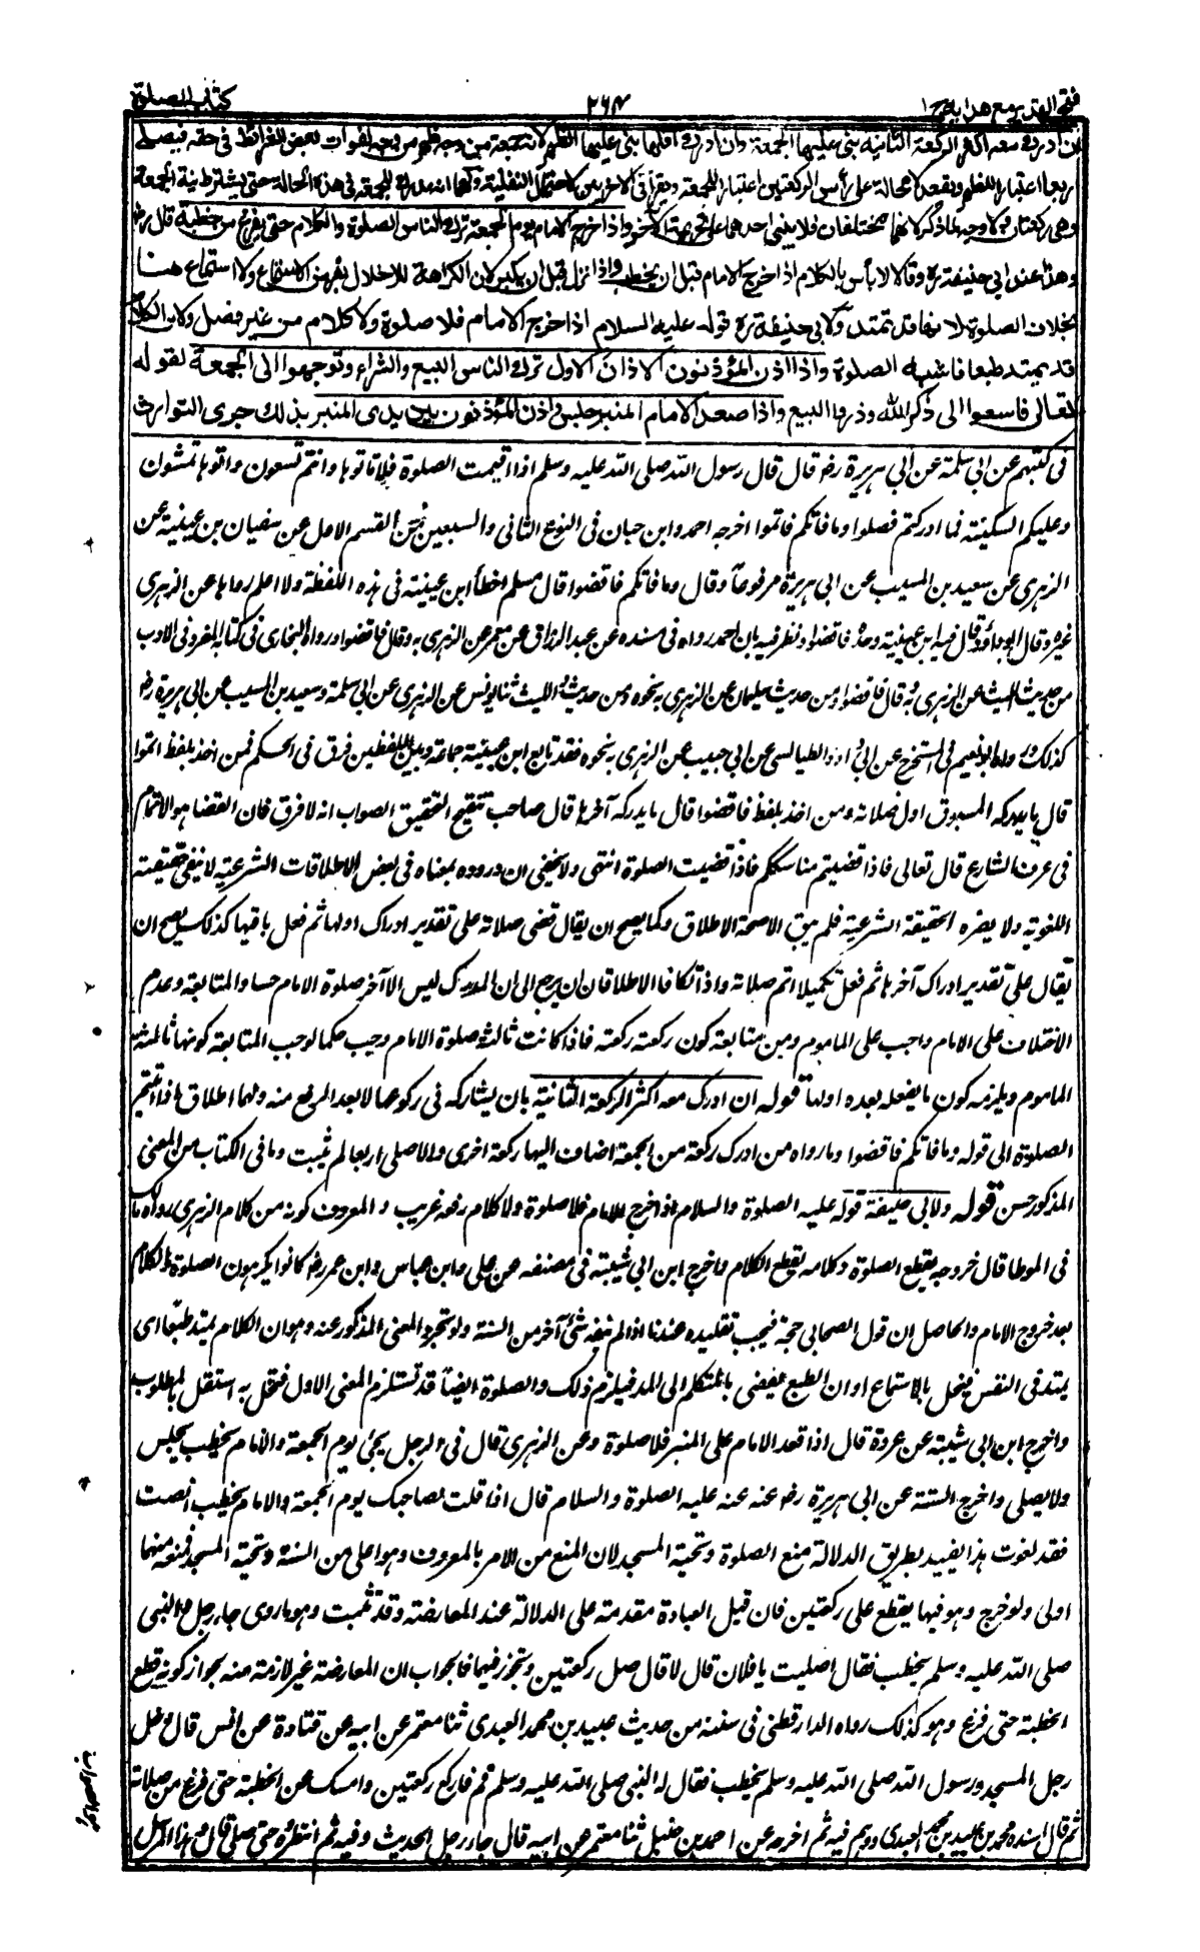 فتح القدير مع هدايه ج ١
٢٦٤
كتاب الصلوة
ان ادرك معه اكثر الركعة الثانية بنى عليها الجمعة وان ادرك اقلها بنى عليها الظهر لانه جمعة من وجه ظهر من وجه لفوات بعض الشرائط فى حقه فيصلى
اربعا اعتبارا للظهر ويقعد لا محالة على رأس الركعتين اعتبارا للجمعة ويقرأ فى الاخريين لاحتمال النفلية ولهما انه مدرك للجمعة فى هذه الحالة حتى يشترط نية الجمعة
وهى ركعتان ولا وجه لما ذكر لانهما مختلفان فلا يبنى احدهما على تحريمة الآخر واذا خرج الامام يوم الجمعة ترك الناس الصلوة والكلام حتى يفرغ من خطبة قال رض
وهذا عند ابى حنيفة ره وقالا لا بأس بالكلام اذا خرج الامام قبل ان يخطب واذا نزل قبل ان يكبر لان الكراهة للاخلال بفرض الاستماع ولا استماع هنا
بخلاف الصلوة لانها قد تمتد ولابى حنيفة ره قوله عليه السلام اذا خرج الامام فلا صلوة ولا كلام من غير فصل ولان الكلام
قد يمتد طبعا فاشبه الصلوة واذا اذن المؤذنون الاذان الاول ترك الناس البيع والشراء وتوجهوا الى الجمعة لقوله
تعالى فاسعوا الى ذكر الله وذروا البيع واذا صعد الامام المنبر جلس واذن المؤذنون بين يدى المنبر بذلك جرى التوارث
فى كتبهم عن ابى سلمة عن ابى هريرة رض قال قال رسول الله صلى الله عليه وسلم اذا اقيمت الصلوة فلا تاتوها وانتم تسعون واتوها تمشون
وعليكم السكينة فما ادركتم فصلوا وما فاتكم فاتموا اخرجه احمد وابن حبان فى النوع الثانى والسبعين من القسم الاول عن سفيان بن عيينة عن
الزهرى عن سعيد بن المسيب عن ابى هريرة مرفوعا وقال وما فاتكم فاقضوا قال مسلم اخطأ ابن عيينة فى هذه اللفظة ولا اعلم رواها عن الزهرى
غيره وقال ابو داؤد قال فيه ابن عيينة وحده فاقضوا ونظر فيه بان احمد رواه فى مسنده عن عبد الرزاق عن معمر عن الزهرى به وقال فاقضوا ورواه البخارى فى كتابه المفرد فى الادب
من حديث الليث عن الزهرى به وقال فاقضوا ومن حديث سليمان عن الزهرى به نحوه ومن حديث الليث ثنا يونس عن الزهرى عن ابى سلمة وسعيد بن المسيب عن ابى هريرة رض
كذلك ورواه ابو نعيم فى المستخرج عن ابى داود الطيالسى عن ابى حبيب عن الزهرى به نحوه فقد تابع ابن عيينة جماعة وبين اللفظين فرق فى الحكم فمن اخذ بلفظ اتموا
قال ما يدركه المسبوق اول صلاته ومن اخذ بلفظ فاقضوا قال ما يدركه آخرها قال صاحب تنقيح التحقيق الصواب انه لا فرق فان القضا هو الاتمام
فى عرف الشارع قال تعالى فاذا قضيتم مناسككم فاذا قضيت الصلوة انتهى ولا يخفى ان وروده بمعناه فى بعض الاطلاقات الشرعية لا ينفى حقيقته
اللغوية ولا يضره الحقيقة الشرعية فلم يبق الا صحة الاطلاق وكما يصح ان يقال قضى صلاته على تقدير ادراك اولها ثم فعل باقيها كذلك يصح ان
يقال على تقدير ادراك آخرها ثم فعل تكميلا اتم صلاته واذا تكافا الاطلاقان يرجع الى ان المدرك ليس الا آخر صلوة الامام حسا والمتابعة وعدم
الاختلاف على الامام واجب على الماموم ومن متابعته كون ركعته ركعته فاذا كانت ثالثة صلوة الامام وجب حكما لوجب المتابعة كونها ثالثة
الماموم ويلزمه كون ما يفعله بعده اولها قوله ان ادرك معه اكثر الركعة الثانية بان يشاركه فى ركوعها لا بعد الرفع منه ولهما اطلاق اذا اتيتم
الصلوة الى قوله وما فاتكم فاقضوا وما رواه من ادرك ركعة من الجمعة اضاف اليها ركعة اخرى والا صلى اربعا لم يثبت وما فى الكتاب من المعنى
المذكور حسن قوله ولابى حنيفة قوله عليه الصلوة والسلام اذا خرج الامام فلا صلوة ولا كلام رفعه غريب والمعروف كونه من كلام الزهرى رواه مالك
فى الموطا قال خروجه يقطع الصلوة وكلامه يقطع الكلام واخرج ابن ابى شيبة فى مصنفه عن على وابن عباس وابن عمر رض كانوا يكرهون الصلوة والكلام
بعد خروج الامام والحاصل ان قول الصحابى حجة فيجب تقليده عندنا اذا لم ينفه شئ آخر من السنة ولو تجرد المعنى المذكور عنه وهو ان الكلام يمتد طبعا اى
يمتد فى النفس فيخل بالاستماع او ان الطبع يفضى بالمتكلم الى المد فيلزم ذلك والصلوة ايضا قد تستلزم المعنى الاول فتخل به استقل بالمطلوب
واخرج ابن ابى شيبة عن عروة قال اذا قعد الامام على المنبر فلا صلوة وعن الزهرى قال فى الرجل يجئ يوم الجمعة والامام يخطب يجلس
ولا يصلى واخرج الستة عن ابى هريرة رض عنه عنه عليه الصلوة والسلام قال اذا قلت لصاحبك يوم الجمعة والامام يخطب انصت
فقد لغوت هذا يفيد بطريق الدلالة منع الصلوة وتحية المسجد لان المنع من الامر بالمعروف وهو اعلى من السنة وتحية المسجد فمنعه منها
اولى ولو خرج وهو فيها يقطع على ركعتين فان قيل العبادة مقدمته على الدلالة عند المعارضة وقد ثبت وهو ما روى جاء رجل والنبى
صلى الله عليه وسلم يخطب فقال اصليت يا فلان قال لا قال صل ركعتين وتجوز فيهما فالجواب ان المعارضة غير لازمة منه بجواز كونه قطع
الخطبة حتى فرغ وهو كذلك رواه الدارقطنى فى سننه من حديث عبيد بن محمد العبدى ثنا معتمر عن ابيه عن قتادة عن انس قال دخل
رجل المسجد ورسول الله صلى الله عليه وسلم يخطب فقال له النبى صلى الله عليه وسلم قم فاركع ركعتين وامسك عن الخطبة حتى فرغ من صلاته
ثم قال اسنده محمد بن عبيد بن محمد العبدى ووهم فيه ثم اخرجه عن احمد بن حنبل ثنا معتمر عن ابيه قال جاء رجل الحديث وفيه ثم انتظره حتى صلى قال وهذا المرسل
هو الصواب